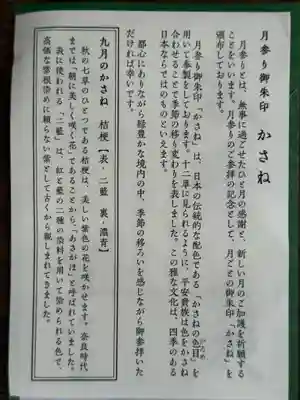 月参り御朱印 かさね
月参りとは、無事に過ごせたひと月の感謝と、新しい月のご加護を祈願する
ことをいいます。月参りのご参拝の記念として、月ごとの御朱印「かさね」を
頒布しております。
月参り御朱印「かさね」は、日本の伝統的な配色である「かさねの色目」を
いろめ
用いて奉製をしております。十二単に見られるように、平安貴族は色をかさね
合わせることで季節の移り変わりを表しました。この雅な文化は、四季のある
日本ならではのものといえます。
都心にありながら緑豊かな境内の中、季節の移ろいを感じながら御参拝いた
だければ幸いです。
九月のかさね 桔梗【表・二藍 裏・濃青】
秋の七草のひとつである桔梗は、美しい紫色の花を咲かせます。奈良時代
までは「朝に美しく咲く花」であることから「あさがほ」と呼ばれていました。
表に使われる「二藍」は、紅と藍の二種の染料を用いて染められる色で、
高価な紫根染めに頼らない紫として古くから親しまれてきました。